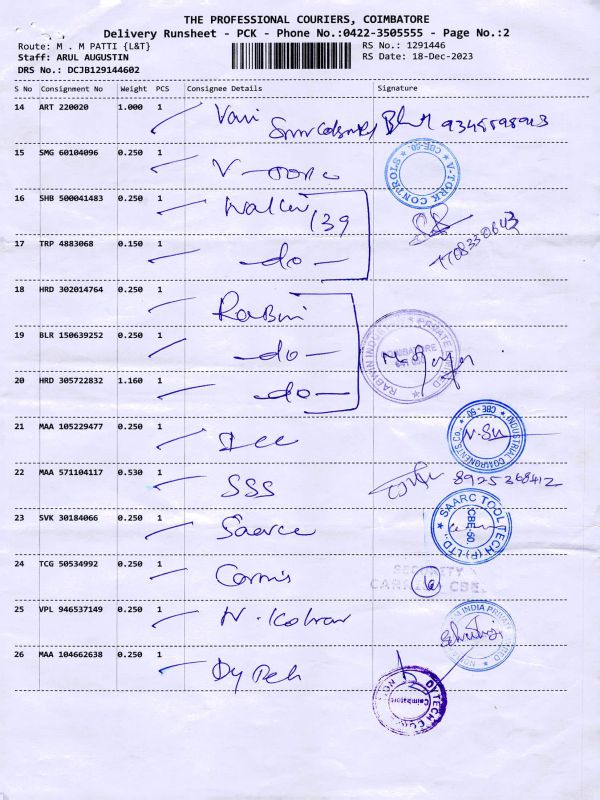 THE PROFESSIONAL COURIERS, COIMBATORE
Delivery Runsheet - PCK - Phone No.:0422-3505555 - Page No.:2
Route: M . M PATTI {L&T}
RS No.: 1291446
Staff: ARUL AUGUSTIN
RS Date: 18-Dec-2023
DRS No.: DCJB129144602
S No Consignment No Weight PCS Consignee Details Signature
14 ART 220020 1.000 1 Vani
15 SMG 60104096 0.250 1
V-TORK CONTROLS * CBE-50. *
16 SHB 500041483 0.250 1
139
17 TRP 4883068 0.150 1 -do-
18 HRD 302014764 0.250 1
19 BLR 150639252 0.250 1 -do-
20 HRD 305722832 1.160 1 -do-
21 MAA 105229477 0.250 1
INDUSTRIAL COMPONENTS Co., * CBE - 50 *
22 MAA 571104117 0.530 1 SSS 8925368412
23 SVK 30184066 0.250 1 Saarc
SAARC TOOLTECH (P) LTD., CBE-50.
24 TCG 50534992 0.250 1
SECURITY
25 VPL 946537149 0.250 1
26 MAA 104662638 0.250 1 Dytech
Coimbatore